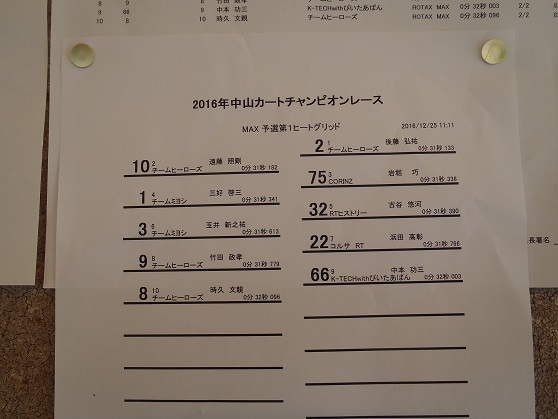 8 9 竹田 政孝
9 66 中本 功三 K-TECHwithびいたあぱん ROTAX MAX 0分 32秒 003 2/2
10 8 時久 文親 チームヒーローズ ROTAX MAX 0分 32秒 096 2/2
2016年中山カートチャンピオンレース
MAX 予選第1ヒートグリッド 2016/12/25 11:11
2 1 後藤 弘祐
チームヒーローズ 0分 31秒 133
10 2 遠藤 照剛
チームヒーローズ 0分 31秒 182
75 3 岩堀 巧
CORINZ 0分 31秒 336
1 4 三好 啓三
チームミヨシ 0分 31秒 341
32 5 吉谷 悠河
RTヒストリー 0分 31秒 390
3 6 玉井 新之祐
チームミヨシ 0分 31秒 613
22 7 浜田 高彰
コルサ RT 0分 31秒 766
9 8 竹田 政孝
チームヒーローズ 0分 31秒 779
66 9 中本 功三
K-TECHwithびいたあぱん 0分 32秒 003
8 10 時久 文親
チームヒーローズ 0分 32秒 096
長署名